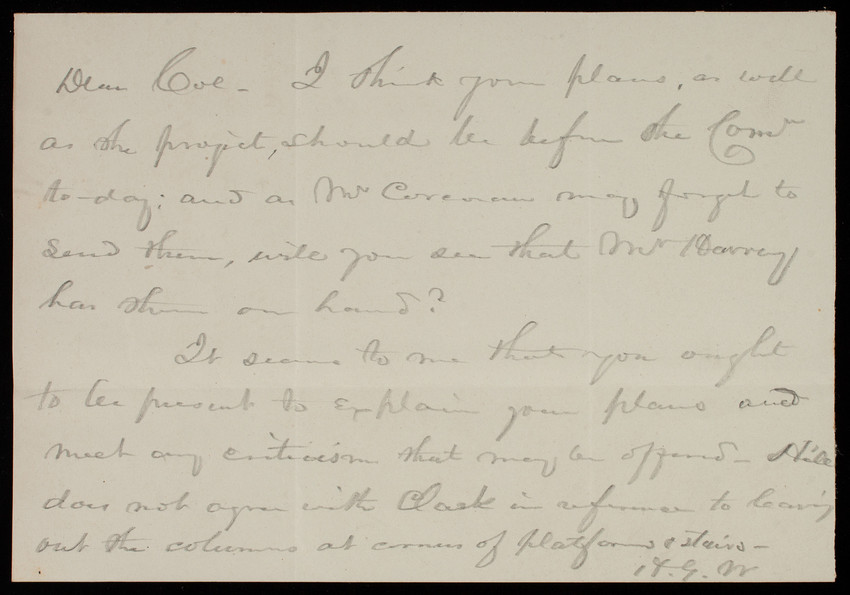 Dear Col - I think your plans, as well
as the project, should be before the Comr
to-day; and as Mr Corcoran may forget to
send them, will you see that Mr Harvey
has them on hand?
It seems to me that you ought
to be present to explain your plans and
meet any criticism that may be offered - Hill
does not agree with Clark in reference to leaving
out the columns at corners of platforms & stairs -
H. G. W